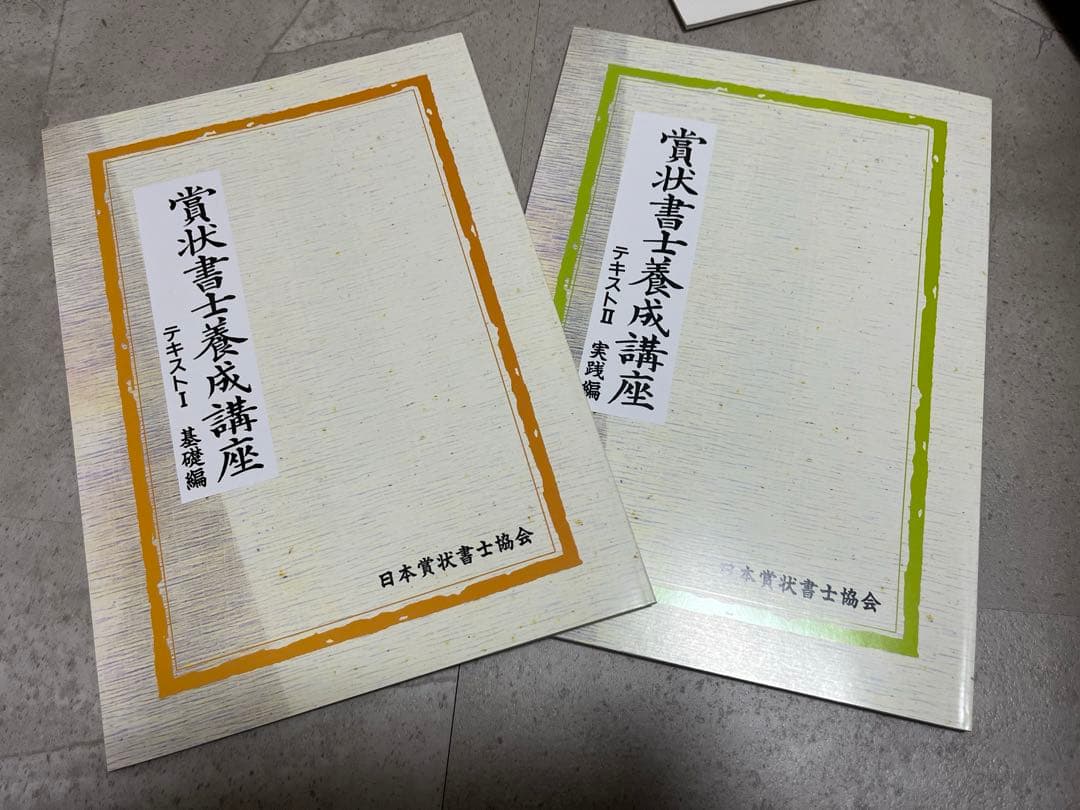 賞状書士養成講座
テキストⅠ 基礎編
日本賞状書士協会
賞状書士養成講座
テキストⅡ 実践編
日本賞状書士協会